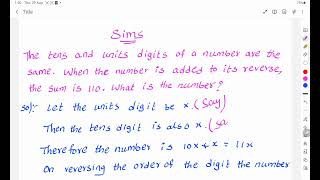 Title
Sims
The tens and units digits of a number are the
same. When the number is added to its reverse,
the sum is 110. What is the number?
Sol:- Let the units digit be x. (Say)
Then the tens digit is also x. (sa
Therefore the number is 10x+x = 11x
On reversing the order of the digit the number